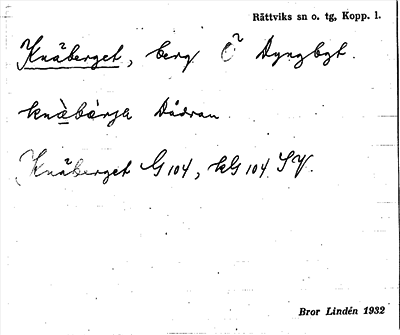 Rättviks sn o. tg, Kopp. l.
Knäberget, berg Ö Dyngbgt.
knäbärja Dådran
Knäberget G 104, kG 104 SV.
Bror Lindén 1932